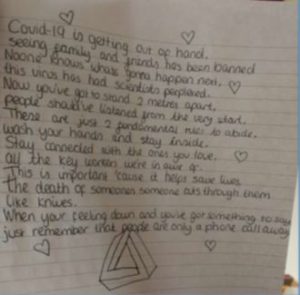 Covid-19 is getting out of hand.
seeing family and friends has been banned
Noone knows whats gonna happen next.
this virus has had scientists perplexed.
Now you've got to stand 2 metres apart,
people should've listened from the very start.
These are just 2 fundamental rules to abide.
wash your hands and stay inside.
Stay connected with the ones you love.
all the key workers were in awe of.
This is important 'cause it helps save lives.
the death of someones someone cuts through them
like knives.
When your feeling down and you've got something to say
just remember that people are only a phone call away